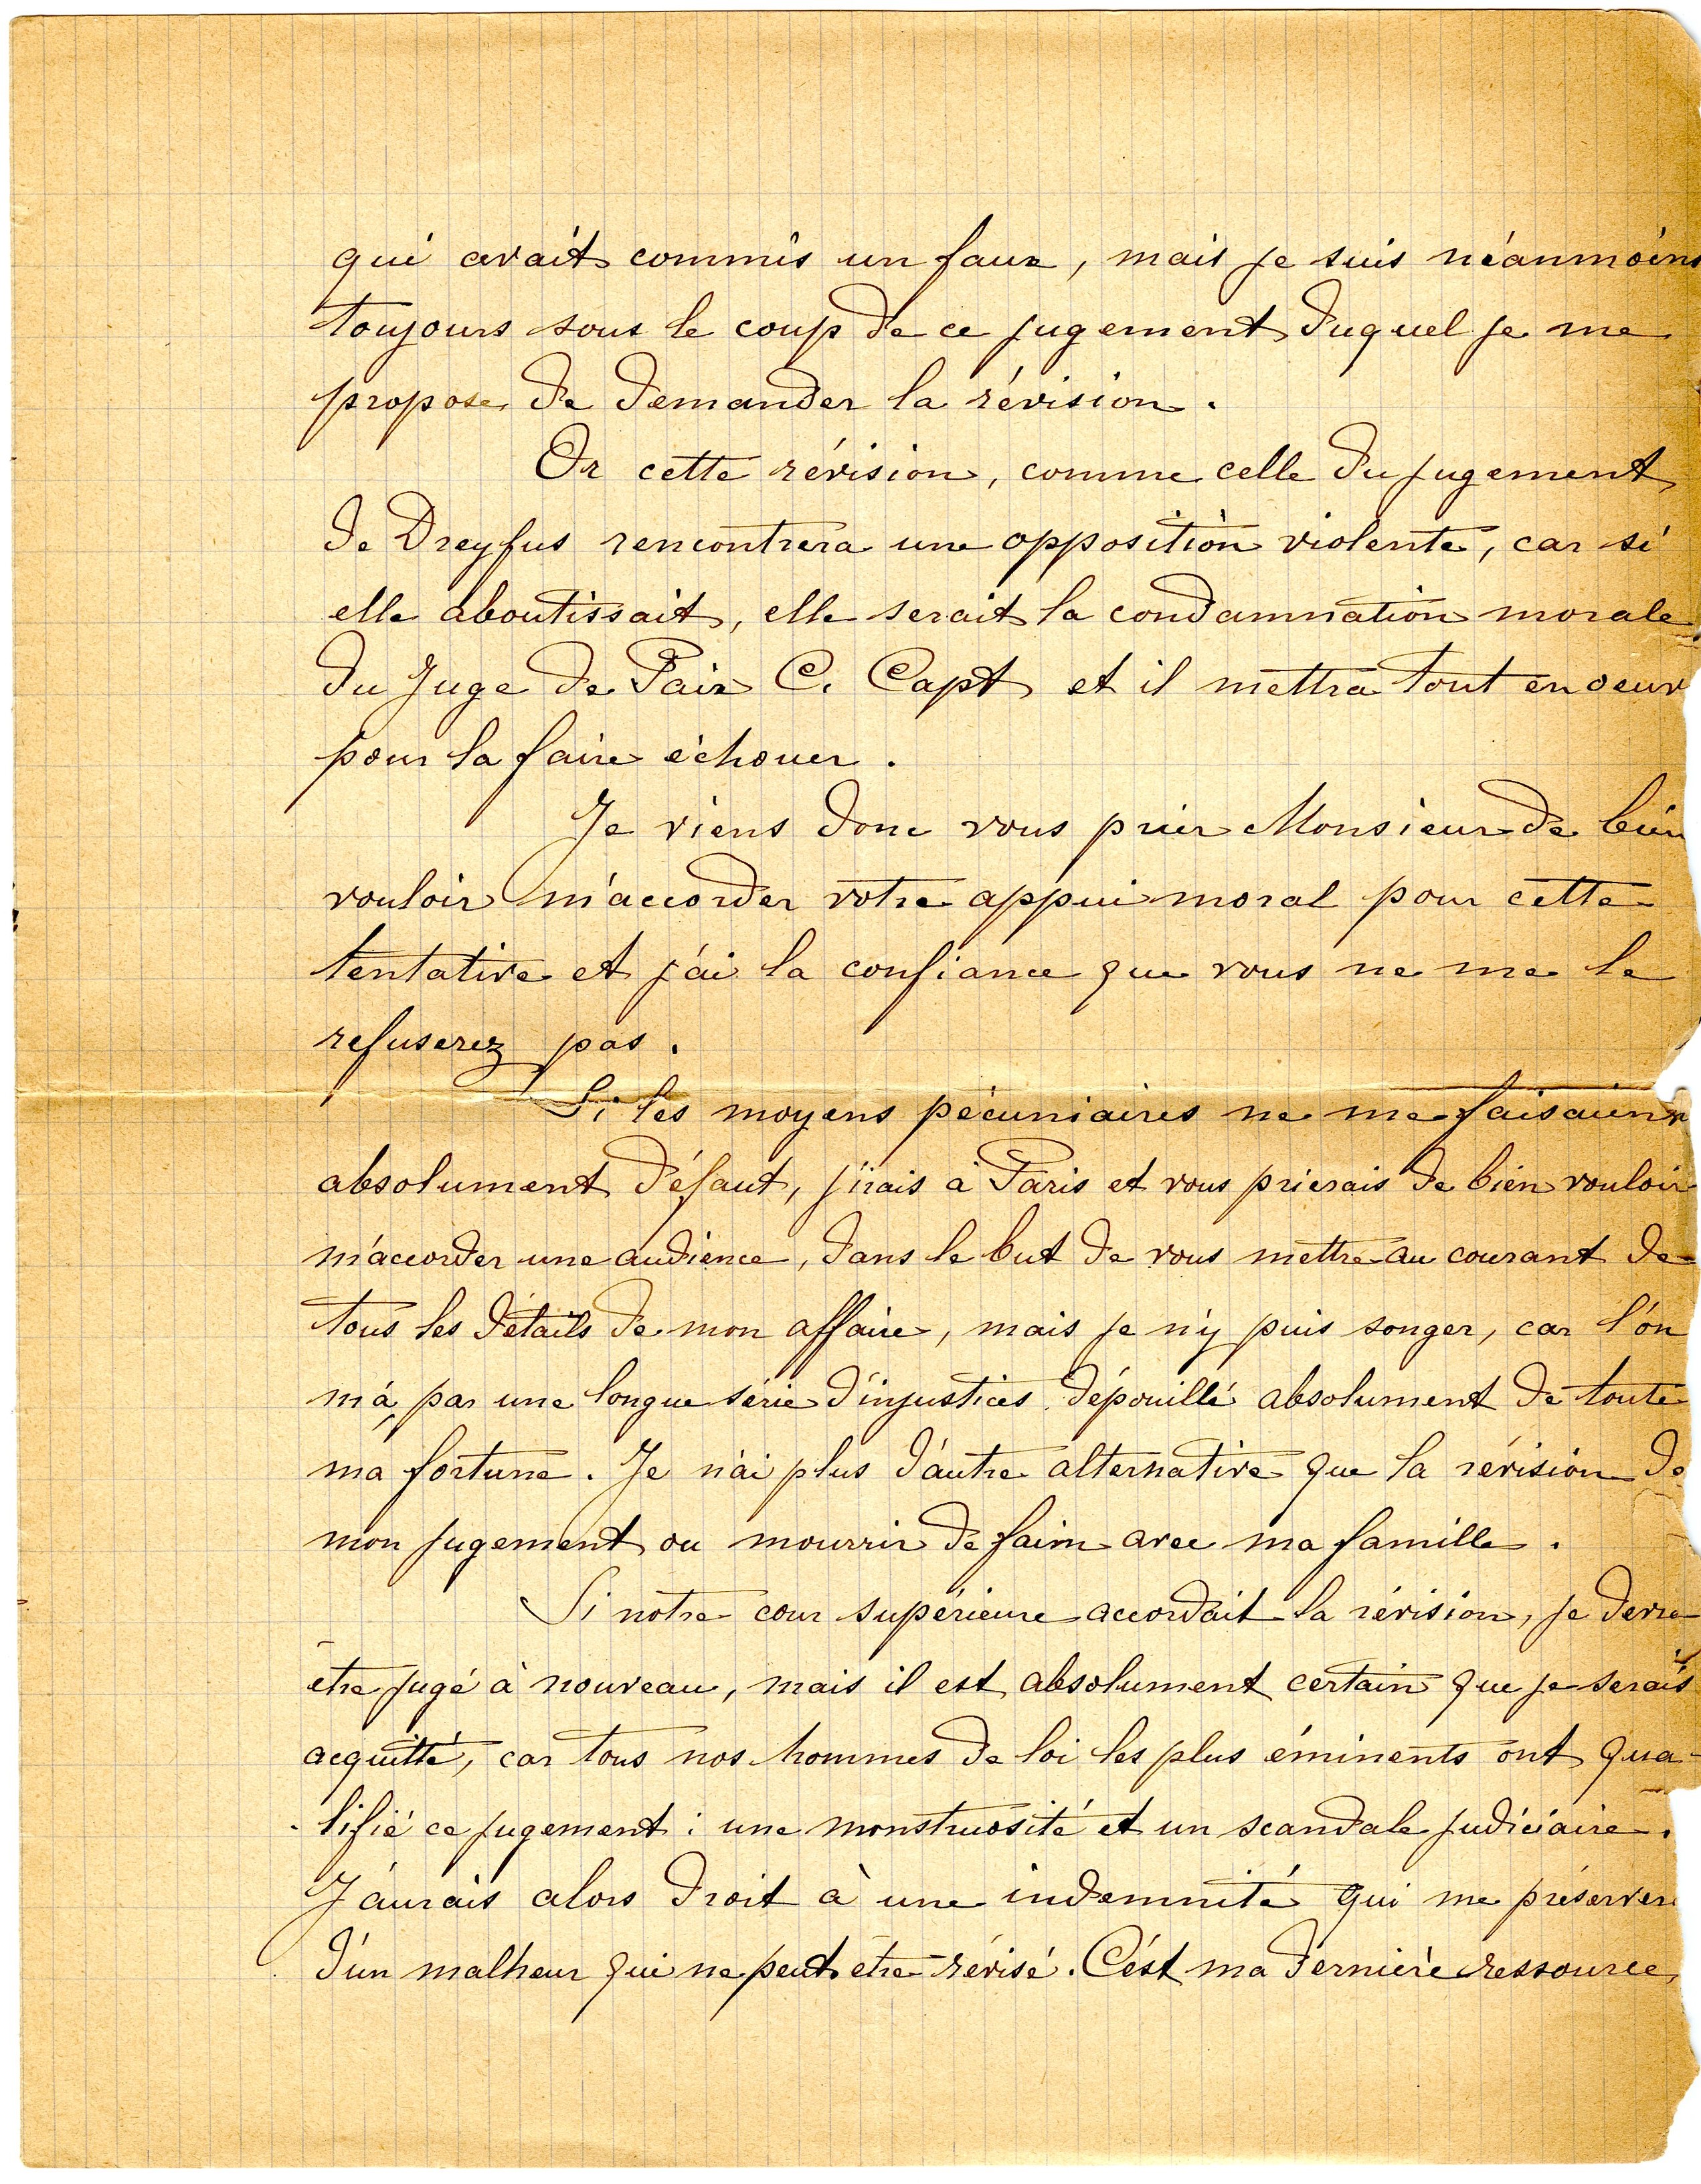 qui avait commis un faux, mais je suis néanmoins
toujours sous le coup de ce jugement duquel je me
propose de demander la révision.
Or cette révision, comme celle du jugement
de Dreyfus rencontrera une opposition violente, car si
elle aboutissait, elle serait la condamnation morale
du Juge de Paix C. Capt et il mettra tout en oeuv
pour la faire échouer.
Je viens donc vous prier Monsieur de bien
vouloir m'accorder votre appui moral pour cette
tentative et j'ai la confiance que vous ne me le
refuserez pas.
Si les moyens pécuniaires ne me faisaient
absolument défaut, j'irais à Paris et vous prierais de bien vouloir
m'accorder une audience, dans le but de vous mettre au courant de
tous les détails de mon affaire, mais je n'y puis songer, car l'on
m'a, par une longue série d'injustices dépouillé absolument de toute
ma fortune. Je n'ai plus d'autre alternative que la révision de
mon jugement ou mourrir de faim avec ma famille.
Si notre cour supérieure accordait la révision, je devra
être jugé à nouveau, mais il est absolument certain que je serais
acquitté, car tous nos hommes de loi les plus éminents ont qua-
lifié ce jugement : une monstruosité et un scandale judiciaire.
J'aurais alors droit à une indemnité qui me préserver
d'un malheur qui ne peut être révisé. C'est ma dernière ressource,